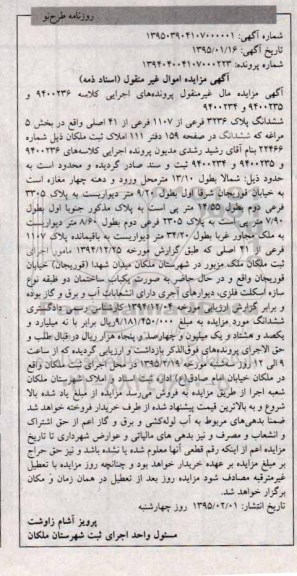 روزنامه طرح‌نو
شماره آگهی: ۱۳۹۵۰۳۹۰۴۱۰۷۰۰۰۰۰۱
تاریخ آگهی: ۱۳۹۵/۰۱/۱۶
شماره پرونده: ۱۳۹۴۰۴۰۰۴۱۰۷۰۰۰۲۲۳
آگهی مزایده اموال غیر منقول (اسناد ذمه)
آگهی مزایده مال غیرمنقول پرونده‌های اجرایی کلاسه ۹۴۰۰۲۳۶ و
۹۴۰۰۲۳۵ و ۹۴۰۰۲۳۴
ششدانگ پلاک ۳۲۳۶ فرعی از ۱۱۰۷ فرعی از ۴۱ اصلی واقع در بخش ۵
مراغه که ششدانگ در صفحه ۱۵۹ دفتر ۱۱۱ املاک ثبت ملکان ذیل شماره
۲۲۴۶۶ بنام آقای رشید رشدی مدیون پرونده اجرایی کلاسه‌های ۹۴۰۰۲۳۶
و ۹۴۰۰۲۳۵ و ۹۴۰۰۲۳۴ ثبت و سند صادر گردیده و محدود است به
حدود ذیل: شمالا بطول ۱۳/۱۰ مترمحل ورود و دهنه چهار مغازه است
به خیابان قوریجان شرقا اول بطول ۹/۲۰ متر دیواریست به پلاک ۳۳۰۵
فرعی دوم بطول ۱۴/۵۵ متر پی است به پلاک مذکور جنوبا اول بطول
۷/۹۰ متر پی است به پلاک ۲۳۰۵ فرعی دوم بطول ۸/۶۰ متر دیواریست
به ملک مجاور غربا بطول ۳۴/۲۰ متر دیواریست به باقیمانده پلاک ۱۱۰۷
فرعی از ۴۱ اصلی که طبق گزارش مورخه ۱۳۹۴/۱۲/۲۵ مامور اجرای
ثبت ملکان ملک مزبور در شهرستان ملکان میدان شهدا (قوریجان) خیابان
قوریجان واقع و در حال حاضر به صورت یکباب ساختمان دو طبقه نوع
سازه اسکلت فلزی، دیوارهای آجری دارای انشعابات آب و برق و گاز بوده
و برابر گزارش ارزیابی مورخه کارشناس رسمی دادگستری
ششدانگ مورد مزایده به مبلغ ۹/۱۸۱/۴۵۰/۰۰۰ریال برابر با نه میلیارد و
یکصد و هشتاد و یک میلیون و چهارصد و پنجاه هزار ریال در قبال طلب و
حق الاجرای پرونده‌های فوق‌الذکر بازداشت و ارزیابی گردیده که از ساعت
۹ الی ۱۲ روز سه‌شنبه مورخه ۱۳۹۵/۲/۱۹ در محل اجرای ثبت ملکان واقع
در ملکان خیابان امام صادق(ع) اداره ثبت اسناد و املاک شهرستان ملکان
شعبه اجرا از طریق مزایده به فروش می‌رسد مزایده از مبلغ یاد شده بالا
شروع و به بالاترین قیمت پیشنهاد شده از طرف خریدار فروخته خواهد شد
ضمنا بدهی‌های مربوط به آب لوله‌کشی و برق و گاز اعم از حق اشتراک
و انشعاب و مصرف و نیز بدهی های مالیاتی و عوارض شهرداری تا تاریخ
مزایده اعم از اینکه رقم قطعی آنها معلوم شده یا نشده باشد و نیز حق حراج
بر مبلغ مزایده بر عهده خریدار خواهد بود و چنانچه روز مزایده با تعطیل
غیرمترقبه مصادف شود مزایده روز بعد از تعطیل در همان زمان و مکان
برگزار خواهد شد.
تاریخ انتشار: ۱۳۹۵/۰۲/۰۱ روز چهارشنبه
پرویز آشام زاوشت
مسئول واحد اجرای ثبت شهرستان ملکان